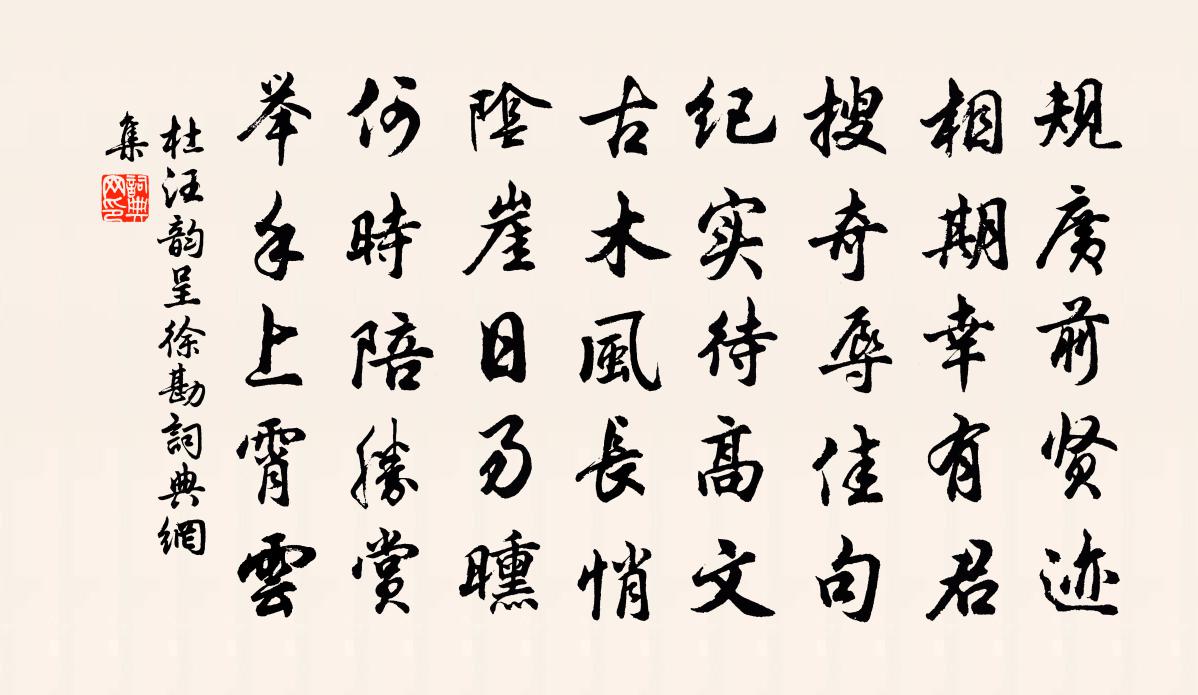 规廣前贤迹
相期幸有君
搜奇辱佳句
纪实待高文
古木風長悄
陰崖日易曛
何時陪勝賞
举手上霄雲
杜汪韵呈徐勘詞典網
集
詞典
网印